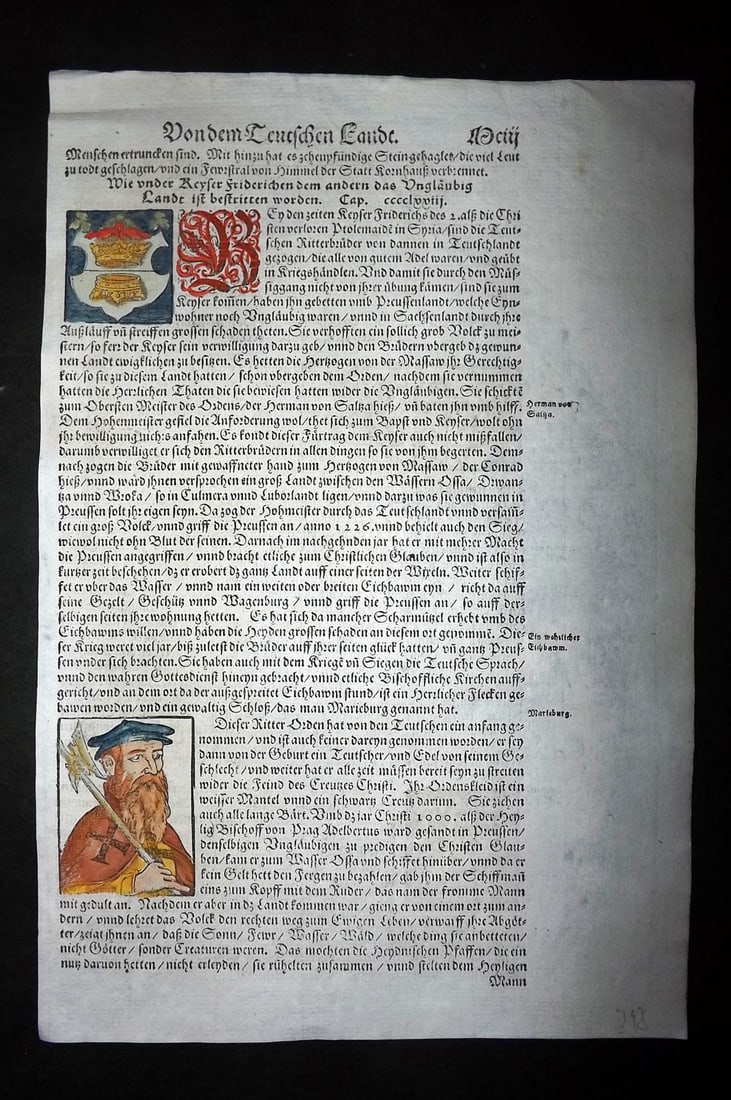 Von dem Teutschen Lande. Mciij
Menschen ertruncken sind. Mit hinzu hat es zehenpfündige Stein gehaglet/die viel Leut
zu todt geschlagen/vnd ein Fewrstral von Himmel der Statt Kornhauß verbrennet.
Wie vnder Keyser Friderichen dem andern das Vngläubig
Landt ist bestritten worden. Cap. cccclxviij.
BEy den zeiten Keyser Friderichs des 2. alß die Chri
sten verloren Ptolemaidē in Syria/sind die Teut-
schen Ritterbrüder von dannen in Teutschlandt
gezogen/die alle von gutem Adel waren/vnd geübt
in Kriegshändlen. Vnd damit sie durch den Müs-
siggang nicht von jhrer übung kämen/sind sie zum
Keyser kom̄en/haben jhn gebetten vmb Preussenlandt/welche Eyn-
wohner noch Vngläubig waren/vnnd in Sachsenlandt durch jhre
Außläuff vn̄ streiffen grossen schaden theten. Sie verhofften ein sollich grob Volck zu mei-
stern/so ferr der Keyser sein verwilligung darzu geb/vnnd den Brüdern vbergeb dz gewun-
nen Landt ewigklichen zu besitzen. Es hetten die Hertzogen von der Massaw jhr Gerechtig-
keit/so sie zu diesem Landt hatten/schon vbergeben dem Orden/nachdem sie vernummen
hatten die Herrlichen Thaten die sie bewiesen hatten wider die Vngläubigen. Sie schicktē
zum Obersten Meister des Ordens/der Herman von Saltza hieß/vn̄ baten jhn vmb hilff.
Herman von
Saltza.
Dem Hohenmeister gefiel die Anforderung wol/thet sich zum Bapst vnd Keyser/wolt ohn
jhr bewilligung nichts anfahen. Es kondt dieser Fürtrag dem Keyser auch nicht mißfallen/
darumb verwilliget er sich den Ritterbrüdern in allen dingen so sie von jhm begerten. Dem-
nach zogen die Brüder mit gewaffneter hand zum Hertzogen von Massaw/der Conrad
hieß/vnnd ward jhnen versprochen ein groß Landt zwischen den Wässern Ossa/Drwan-
tza vnnd Wroka/so in Culmera vnnd Luborlandt ligen/vnnd darzu was sie gewunnen in
Preussen solt jhr eigen seyn. Da zog der Hohmeister durch das Teutschlandt vnnd versam̄-
let ein groß Volck/vnnd griff die Preussen an/anno 1226. vnnd behielt auch den Sieg/
wiewol nicht ohn Blut der seinen. Darnach im nachgehnden jar hat er mit mehrer Macht
die Preussen angegriffen/vnnd bracht etliche zum Christlichen Glauben/vnnd ist also in
kurtzer zeit beschehen/dz er erobert dz gantz Landt auff einer seiten der Wixeln. Weiter schif-
fet er vber das Wasser/vnnd nam ein weiten oder breiten Eichbawm eyn/richt da auff
seine Gezelt/Geschütz vnnd Wagenburg/vnnd griff die Preussen an/so auff der-
selbigen seiten jhre wohnung hetten. Es hat sich da mancher Scharmützel erhebt vmb des
Eichbawms willen/vnnd haben die Heyden grossen schaden an diesem ort genommē. Die-
Ein wehrlicher
Eichbawm.
ser Krieg weret viel jar/biß zuletst die Brüder auff jhrer seiten glück hatten/vn̄ gantz Preus-
sen vnder sich brachten. Sie haben auch mit dem Kriegē vn̄ Siegen die Teutsche Sprach/
vnnd den wahren Gottsdienst hineyn gebracht/vnnd etliche Bischoffliche Kirchen auff-
gericht/vnd an dem ort da der außgespreitet Eichbawm stund/ist ein Herrlicher Flecken ge-
bawen worden/vnd ein gewaltig Schloß/das man Marieburg genannt hat.
Marieburg.
Dieser Ritter Orden hat von den Teutschen ein anfang ge-
nommen/vnd ist auch keiner dareyn genommen worden/er sey
dann von der Geburt ein Teutscher/vnd Edel von seinem Ge-
schlecht/vnd weiter hat er alle zeit müssen bereit seyn zu streiten
wider die Feind des Creutzes Christi. Ihr Ordenskleid ist ein
weisser Mantel vnnd ein schwartz Creutz darinn. Sie ziehen
auch alle lange Bärt. Vmb dz jar Christi 1000. alß der Hey-
lig Bischoff von Prag Adelbertus ward gesandt in Preussen/
denselbigen Vngläubigen zu predigen den Christen Glau-
ben/kam er zum Wasser Ossa vnd schiffet hinüber/vnnd da er
kein Gelt hett den Fergen zu bezahlen/gab jhm der Schiffman̄
eins zum Kopff mit dem Ruder/das nam der fromme Mann
mit gedult an. Nachdem er aber in dz Landt kommen war/gieng er von einem ort zum an-
dern/vnnd lehret das Volck den rechten weg zum Ewigen Leben/verwarff jhre Abgöt-
ter/zeigt jhnen an/daß die Sonn/Fewr/Wasser/Wäld/welche ding sie anbetteten/
nicht Götter/sonder Creaturen weren. Das mochten die Heydnischen Pfaffen/die ein
nutz daruon hetten/nicht erleyden/sie rühelten zusammen/vnnd stelten dem Heyligen
Mann